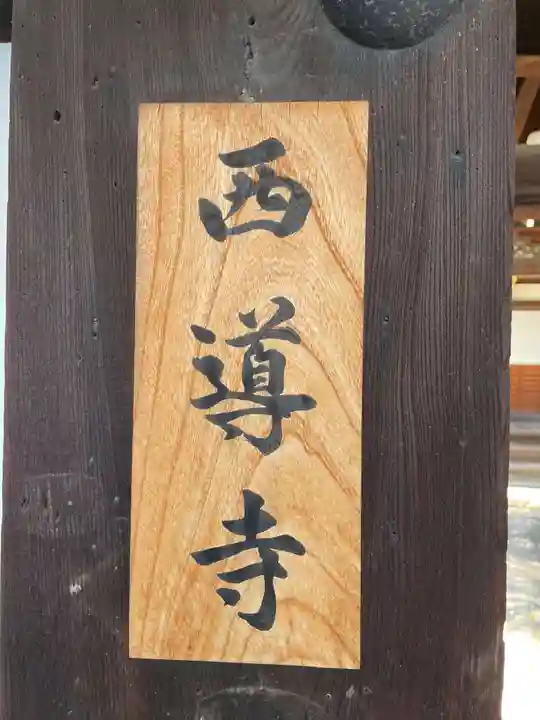 西導寺